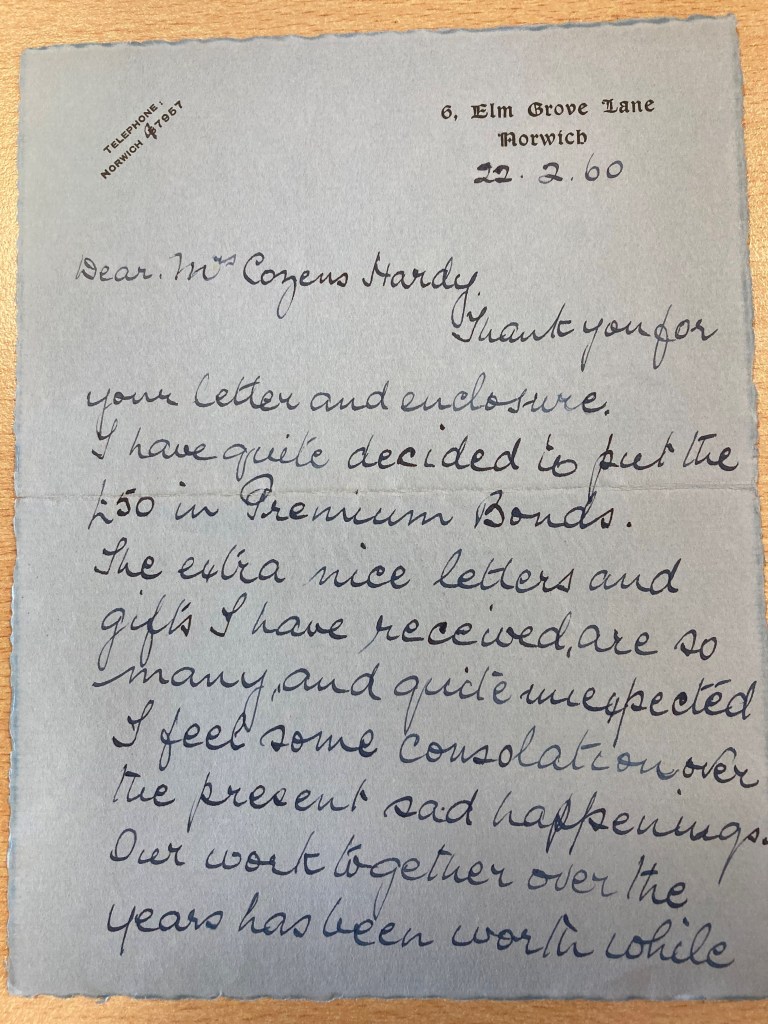 TELEPHONE:
NORWICH 47957
6, Elm Grove Lane
Norwich
22.2.60
Dear. Mrs Cozens Hardy,
Thank you for
your letter and enclosure.
I have quite decided to put the
£50 in Premium Bonds.
The extra nice letters and
gifts I have received, are so
many, and quite unexpected
I feel some consolation over
the present sad happenings.
Our work together over the
years has been worth while